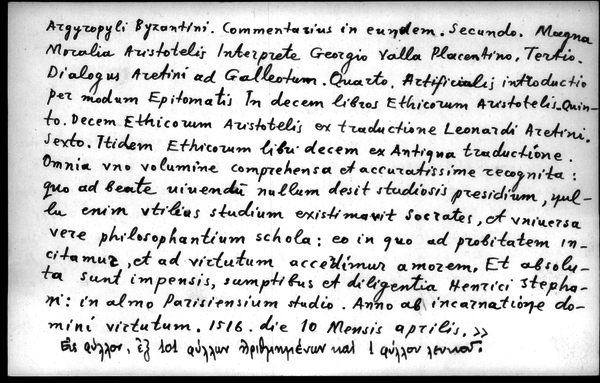 Argyropyli Byzantini. Commentarius in eundem. Secundo. Magna
Moralia Aristotelis Interprete Georgio Valla Placentino. Tertio.
Dialogus Aretini ad Galleotum. Quarto. Artificialis introductio
per modum Epitomatis In decem libros Ethicorum Aristotelis. Quin-
to. Decem Ethicorum Aristotelis ex traductione Leonardi Aretini.
Sexto. Itidem Ethicorum libri decem ex Antiqua traductione.
Omnia vno volumine comprehensa et accuratissime recognita:
quo ad beate uiuendū nullum desit studiosis presidium, nul-
lu enim vtilius studium existimavit Socrates, et vniuersa
vere philosophantium schola: eo in quo ad probitatem in-
citamur, et ad virtutum accedimur amorem. Et absolu-
ta sunt impensis, sumptibus et diligentia Henrici Stepha-
ni: in almo Parisiensium studio. Anno ab incarnatione do-
mini virtutum. 1516. die 10 Mensis aprilis. »
Εἰς φύλλον, ἐξ 101 φύλλων ἠριθμημένων καὶ 1 φύλλον λευκοῦ.